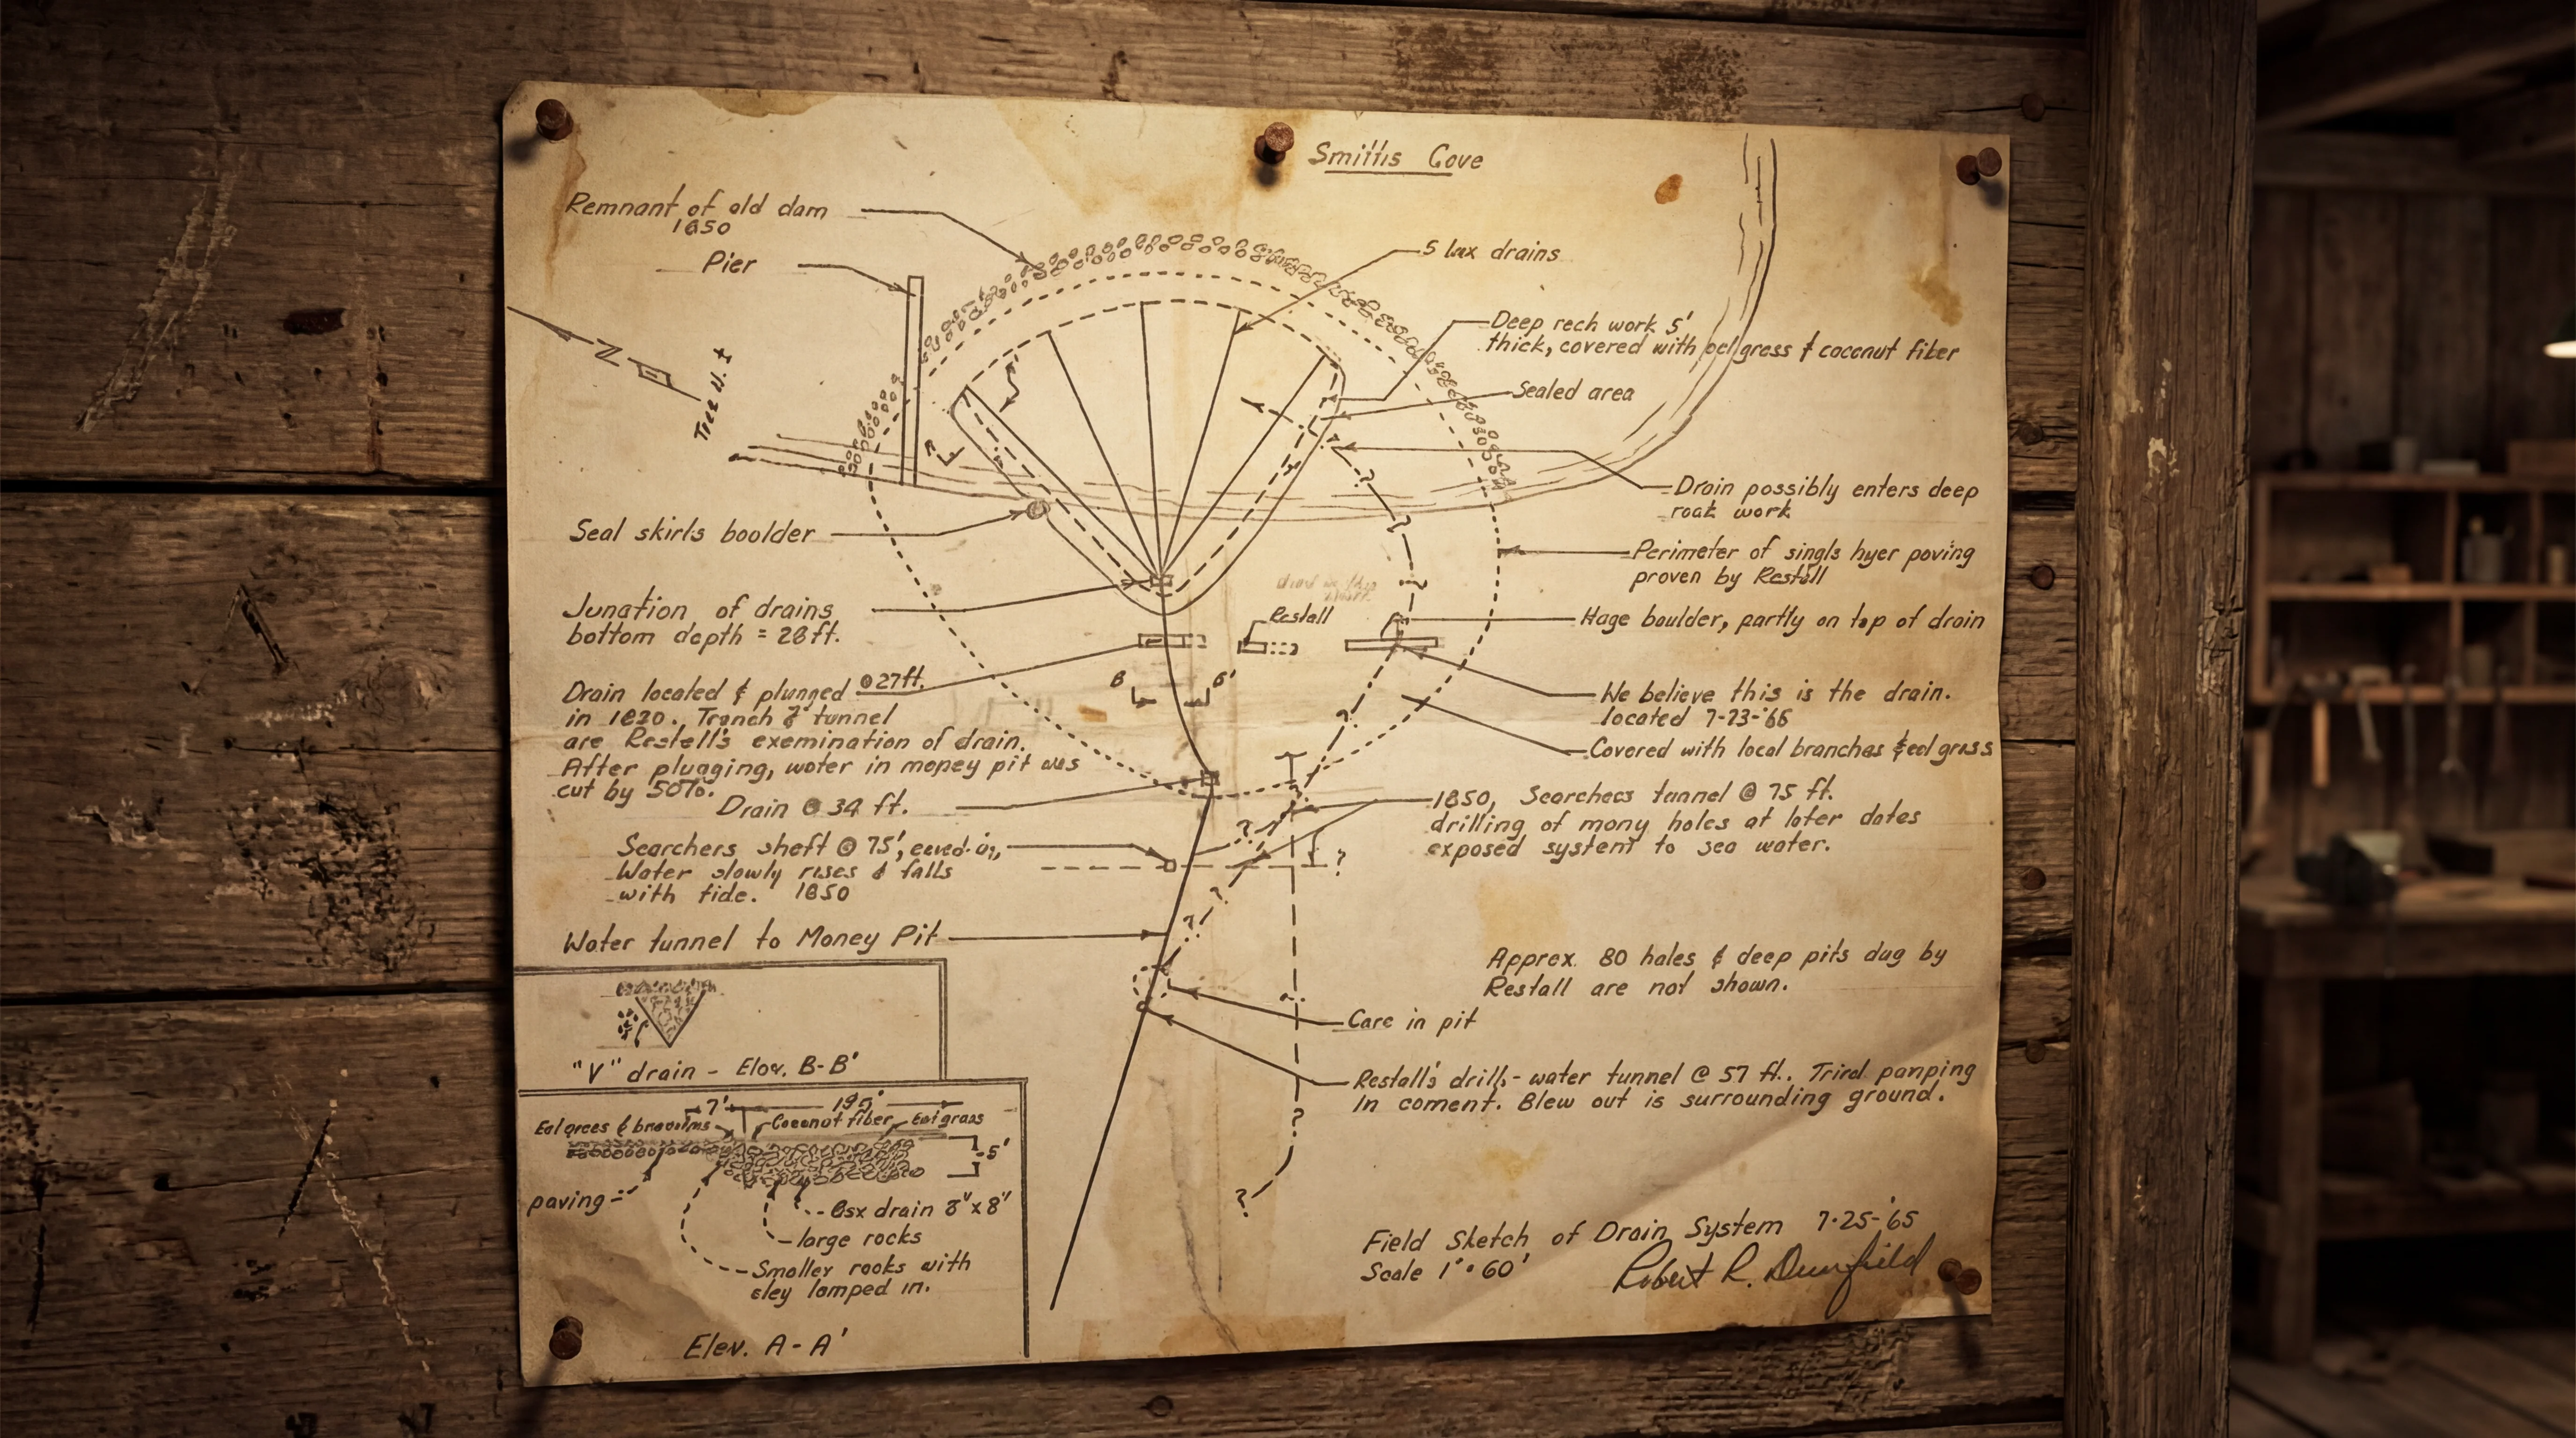 Smiths Cove
Remnant of old dam
1850
Pier
5 box drains
Deep rech work 5'
thick, covered with eel grass & coconut fiber
Sealed area
True N.
Drain possibly enters deep
roak work
Seal skirls boolder
Perimeter of singls hyer poving
proven by Restall
Junation of drains
bottom depth = 28 ft.
Restall
Hage boulder, partly on top of drain
Drain located & plunged @27ft.
in 1820., Tranch & tunnel
are Restell's exemination of drain.
After plugging, water in mopey pit was
cut by 50%.
B B'
We believe this is the drain.
located 7-23-'65
Covered with local branches & eel grass
Drain @ 34 ft.
1850, Searchers tunnel @ 75 ft.
drilling of mony holes at later dates
exposed system to sea water.
Searchers sheft @ 75', caved in,
Water slowly rises & falls
with tide. 1850
Water tunnel to Money Pit
Approx. 80 hales & deep pits dug by
Restall are not shown.
Care in pit
"V" drain - Elev. B-B'
Restall's drill - water tunnel @ 57 ft.. Tried pamping
In coment. Blew out is surrounding ground.
7' 195'
Eel grees & Coconut fiber Eel grass
5'
paving
Box drain 8"x8"
large rocks
Smaller rooks with
cley lamped in.
Elev. A-A'
Field Sketch of Drain System 7-25-'65
Scale 1" = 60'
Robert R. Dunfield